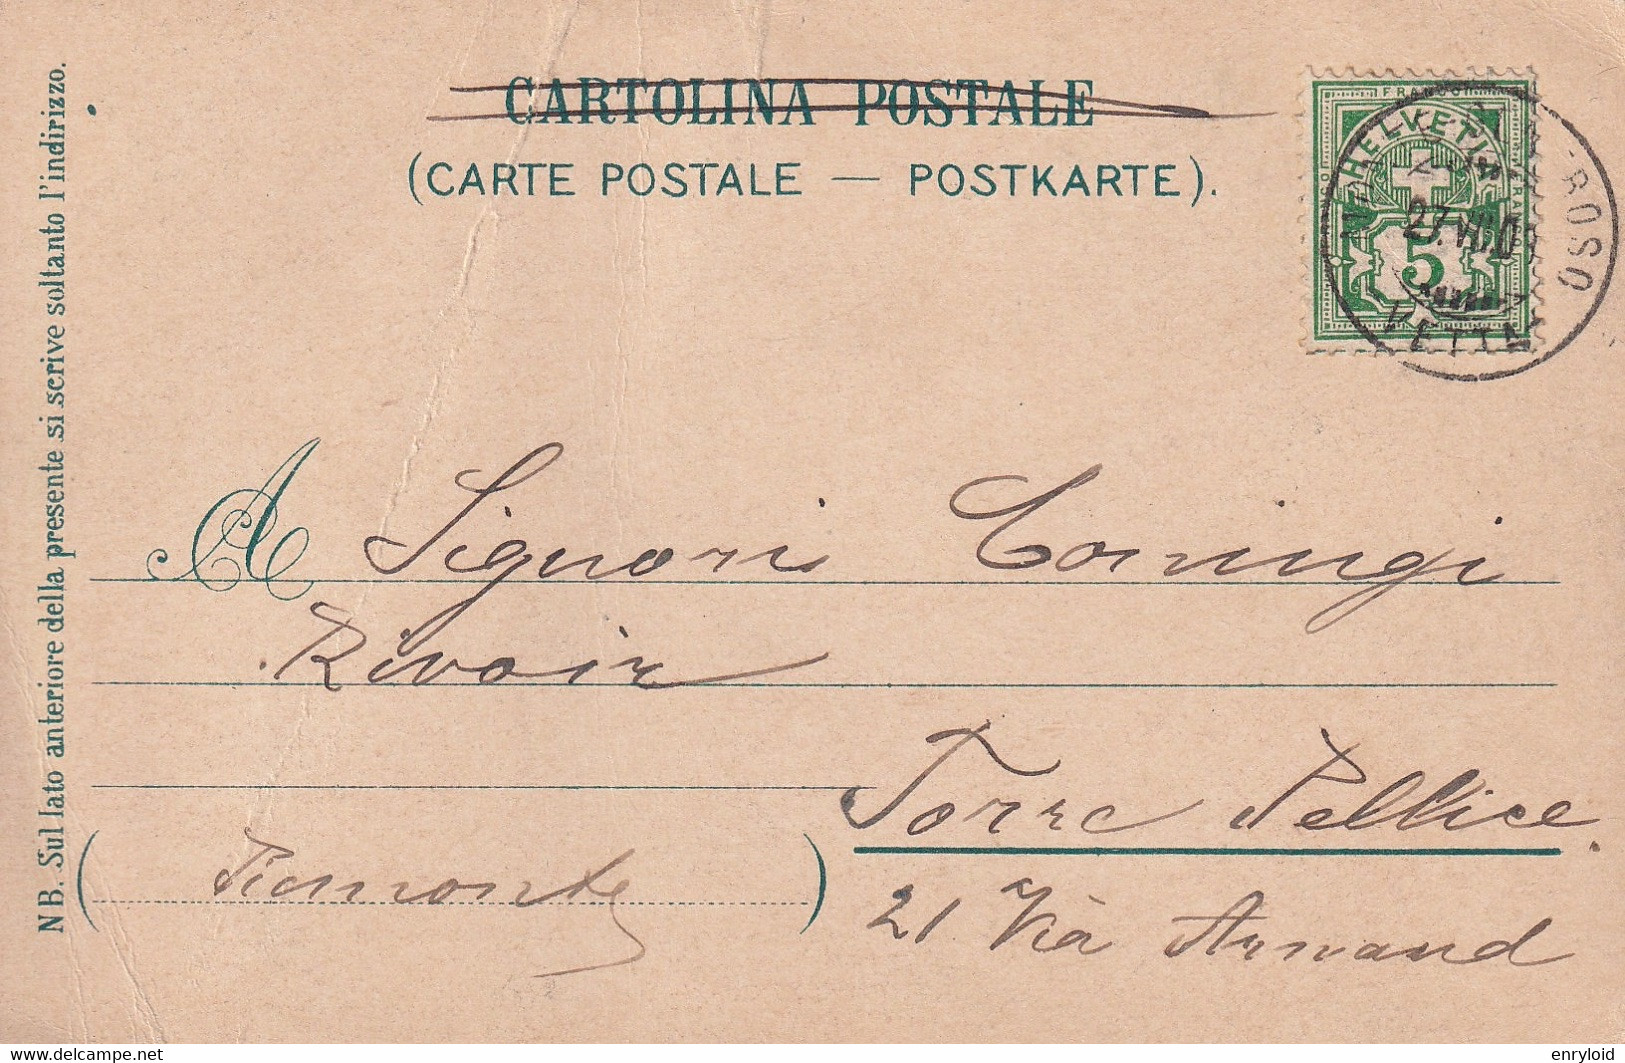 CARTOLINA POSTALE
(CARTE POSTALE — POSTKARTE).
FRANCO
HELVETIA
5
27.VII.0
-ROSO
VETTA
NB. Sul lato anteriore della presente si scrive soltanto l'indirizzo.
A Signori Coningi
Rivoir
Torre Pellice.
(Piemonte)
21 Via Armand
www.delcampe.net
enryloid